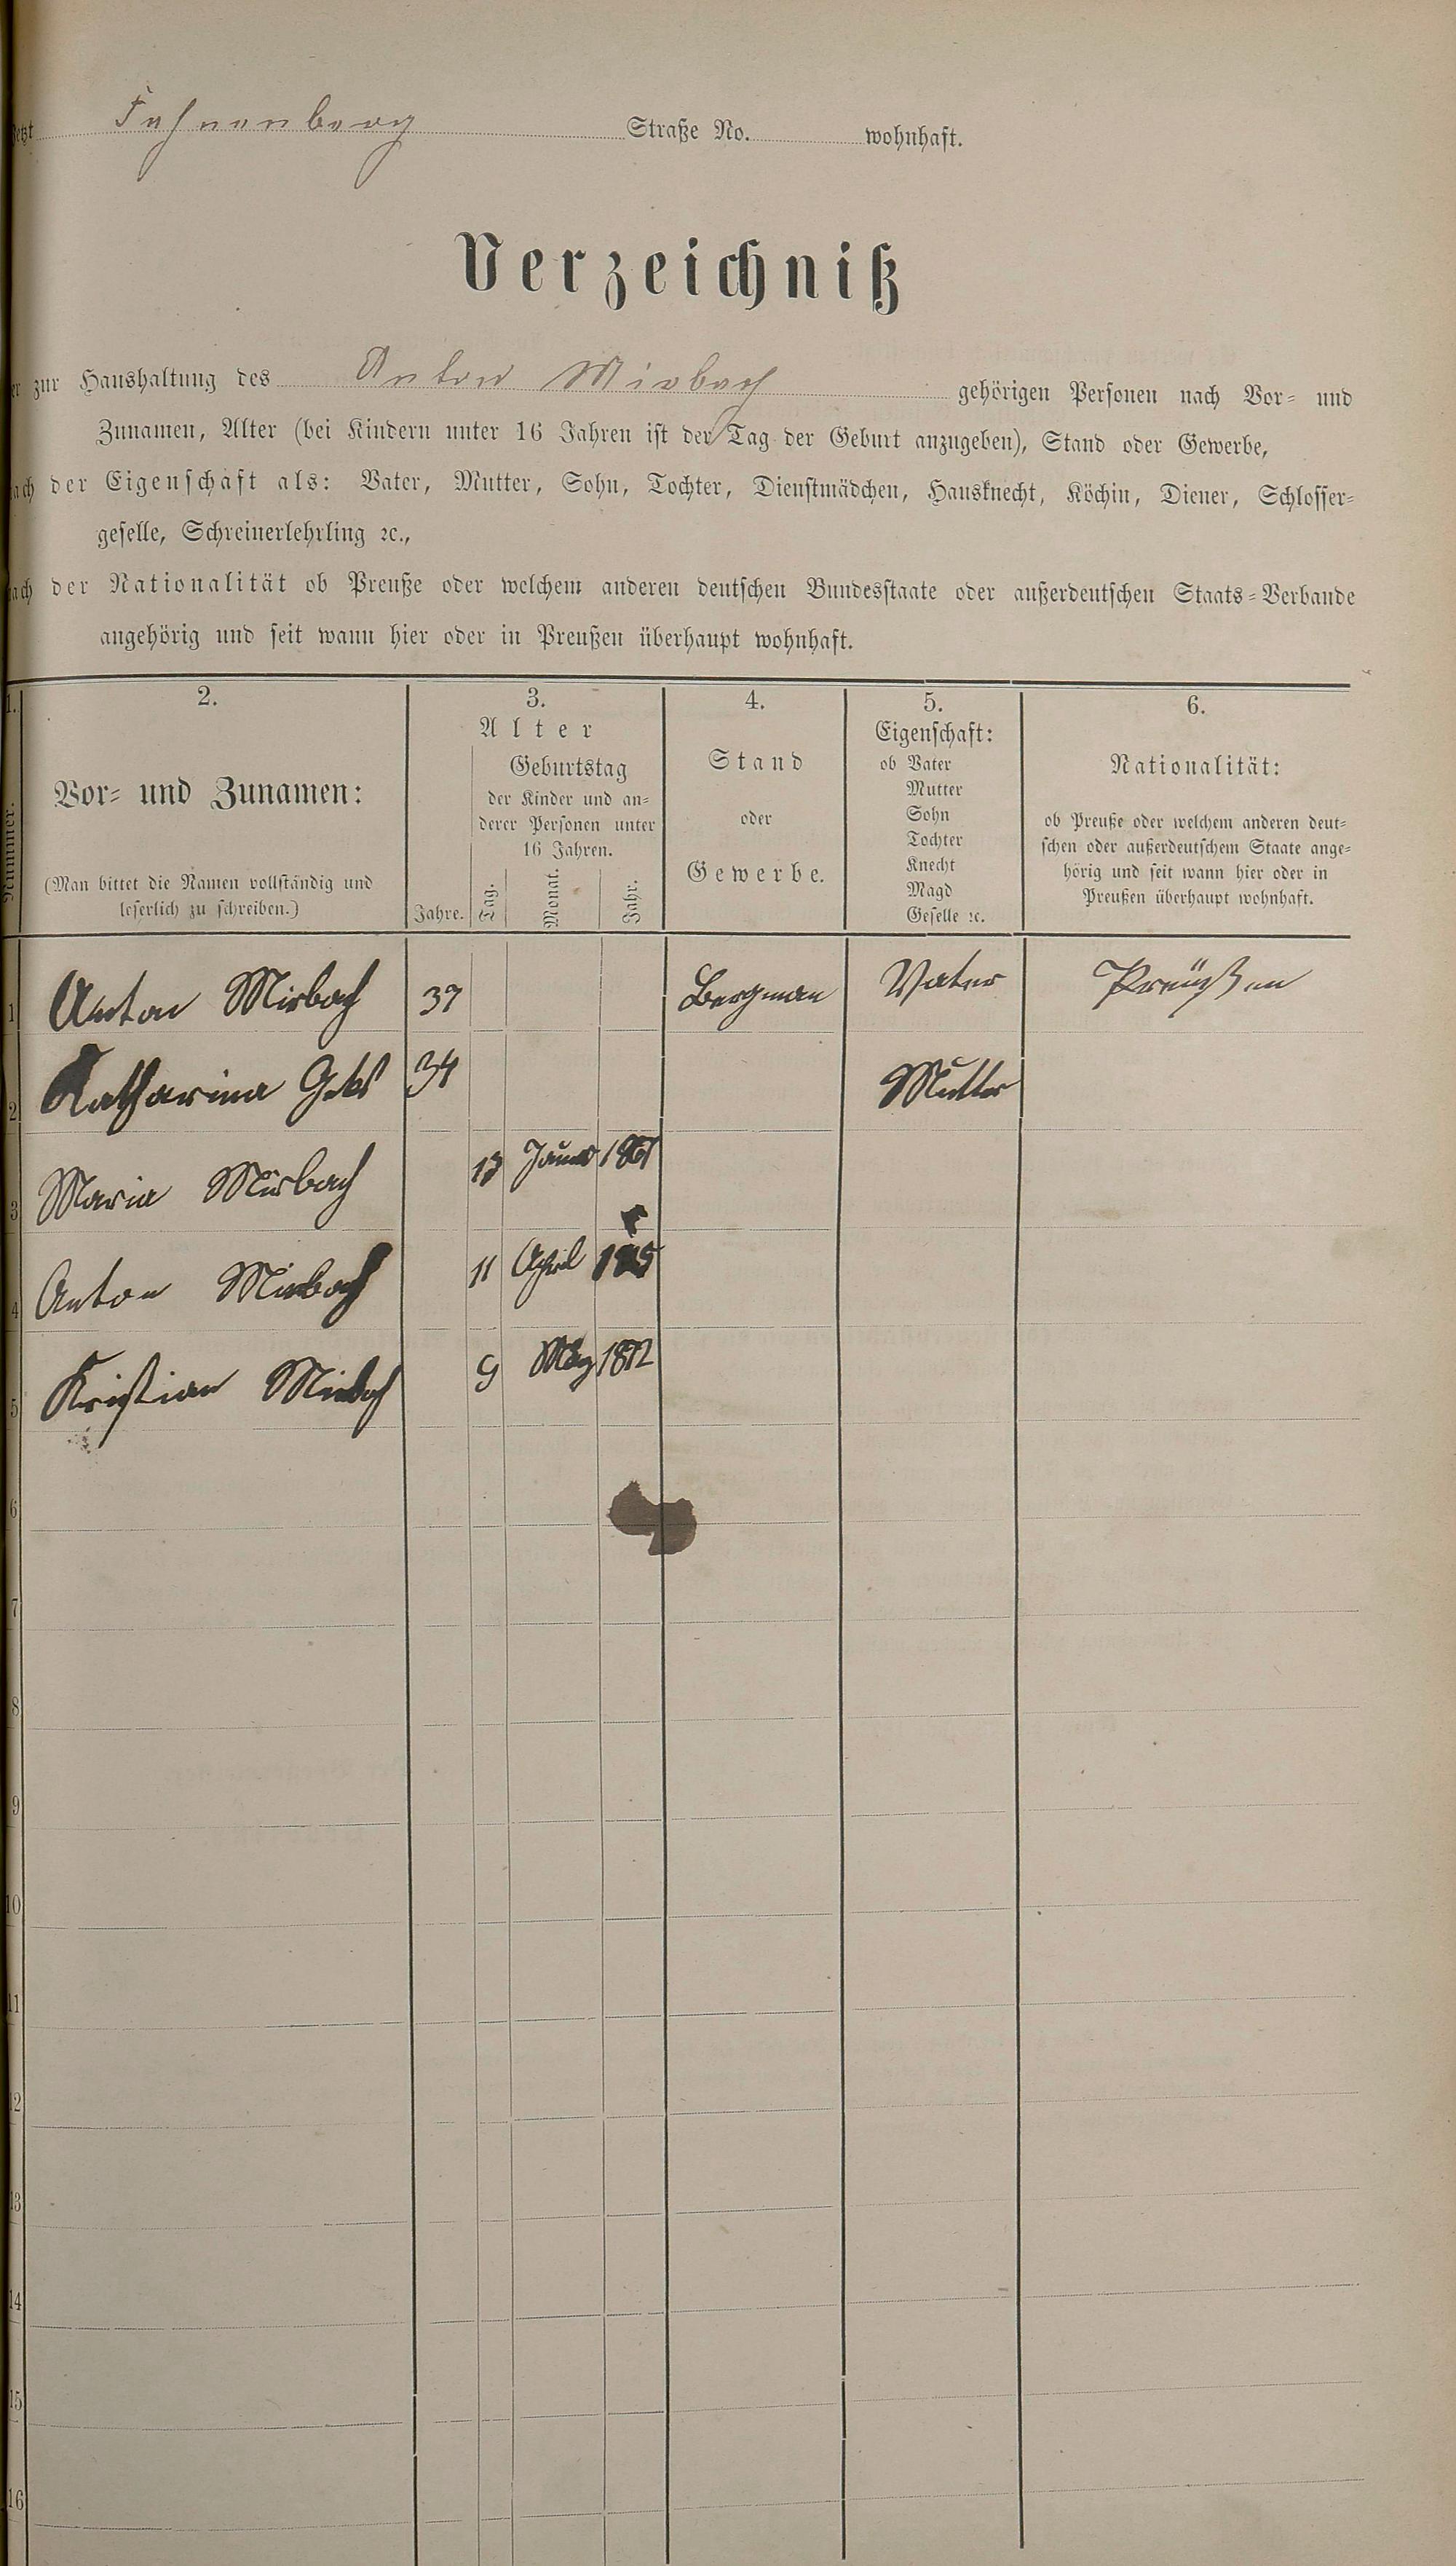 jetzt Fahnenberg Straße No. wohnhaft.
Verzeichniß
zur Haushaltung des Anton Mirbach gehörigen Personen nach Vor- und
Zunamen, Alter (bei Kindern unter 16 Jahren ist der Tag der Geburt anzugeben), Stand oder Gewerbe,
nach der Eigenschaft als: Vater, Mutter, Sohn, Tochter, Dienstmädchen, Hausknecht, Köchin, Diener, Schlosser-
geselle, Schreinerlehrling ꝛc.,
nach der Nationalität ob Preuße oder welchem anderen deutschen Bundesstaate oder außerdeutschen Staats-Verbande
angehörig und seit wann hier oder in Preußen überhaupt wohnhaft.
1. 2. 3. 4. 5. 6.
Nummer.
Vor- und Zunamen:
(Man bittet die Namen vollständig und
leserlich zu schreiben.)
Alter
Jahre.
Geburtstag
der Kinder und an-
derer Personen unter
16 Jahren.
Tag. Monat. Jahr.
Stand
oder
Gewerbe.
Eigenschaft:
ob Vater
Mutter
Sohn
Tochter
Knecht
Magd
Geselle ꝛc.
Nationalität:
ob Preuße oder welchem anderen deut-
schen oder außerdeutschem Staate ange-
hörig und seit wann hier oder in
Preußen überhaupt wohnhaft.
1 Anton Mirbach 37 Bergman Vater Preußen
2 Katharina 34 Mutter
3 Maria Mirbach 13
4 Anton Mirbach 11 April
5 Kristian Mirbach 9 März 1872
6
7
8
9
10
11
12
13
14
15
16